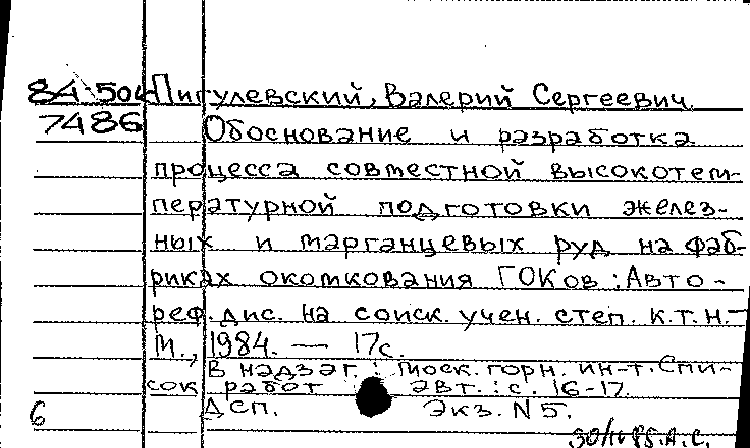 84-504 Пигулевский, Валерий Сергеевич.
7486 Обоснование и разработка
процесса совместной высокотем-
пературной подготовки желез-
ных и марганцевых руд на фаб-
риках окомкования ГОКов : Авто-
реф. дис. на соиск. учен. степ. к.т.н. -
М., 1984. — 17с.
В надзаг. : Моск. горн. ин-т. Спи-
сок работ авт. : с. 16-17.
Дсп. Экз. N5.
6
А.С.